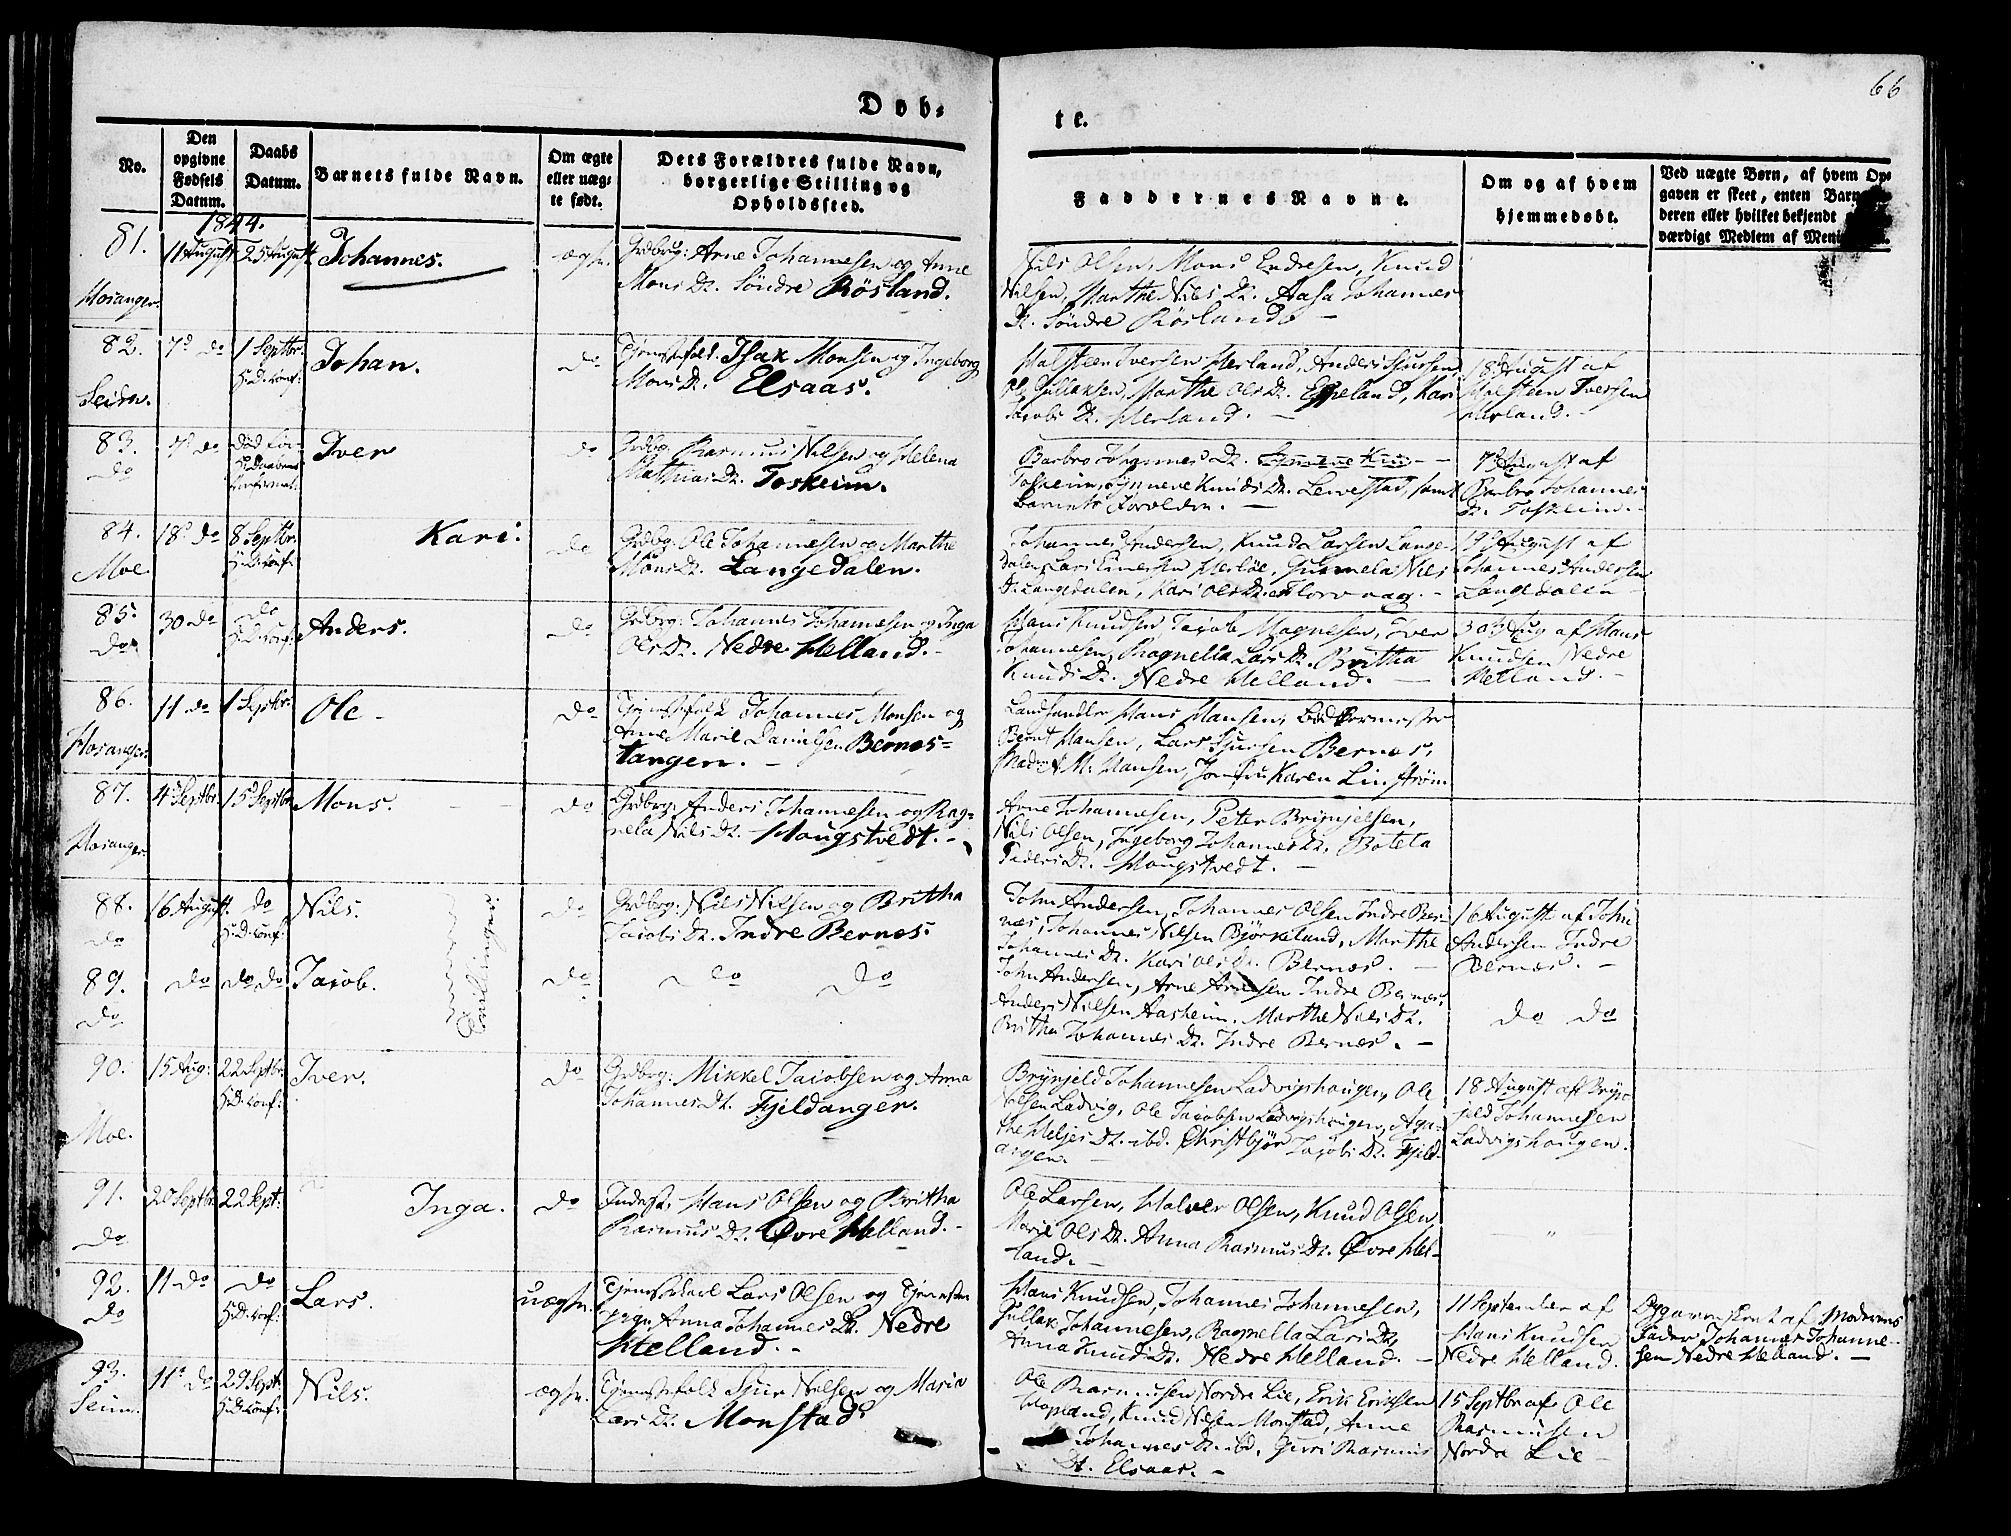 66
Døb=
te.
No.
Den opgivne Fødsels Datum.
Daabs Datum.
Barnets fulde Navn.
Om ægte eller uæg= te født.
Dets Forældres fulde Navn, borgerlige Stilling og Opholdssted.
Faddernes Navne.
Om og af hvem hjemmedøbt.
Ved uægte Børn, af hvem Op=
gaven er skeet, enten Barn
deren eller hvilket bekjendt
værdigt Medlem af Meni
1844.
81.
Hosanger.
11 August
25 August
Johannes.
ægte.
Grdbrg: Arne Johannesen og Anne
Mons Dt. Søndre Røsland.
Nils Olsen, Mons Endresen, Knud
Nilsen, Marthe Nils Dt. Aasa Johannes
Dt. Søndre Røsland. –
82.
Seim.
7de do
1 Septbr:
H:D: konf:
Johan.
do
Tjenestfolk. Isak Monsen og Ingeborg
Mons Dt. Elsaas.
Halsteen Iversen Herland, Anders Sjursen,
Ole Gullaksen, Marthe Ols Dt. Eppeland, Kari
Jacobs Dt. Herland. –
18 August af
Halsteen Iversen
Herland. –
83.
do
7de do
død før
Iver
do
Grdbrg: Rasmus Nilsen og Helena
Mathias Dt. Toskeim.
Barbro Johannes Dt.
Toskeim, Synneve Knuds Dt. Levestad, samt
Barnets Forældre. –
7de August af
Barbro Johannes
Dt. Toskeim. –
84.
Moe.
18de do
8 Septbr:
H:D: konf:
Kari:
do
Grdbrg: Ole Johannesen og Marthe
Mons Dt. Langedalen.
Johannes Andersen, Knud Larsen Lange-
dalen, Lars Einersen Herløe, Gunnela Nils
Dt. Langedalen, Kari Ols Dt. Florvaag. –
19 August af
Johannes Andersen
Langedalen –
85.
do
30 do
do
H:D: konf:
Anders.
do
Grdbrg: Johannes Johannesen og Inga
Ols Dt. Nedre Helland. –
Hans Knudsen, Jacob Magnesen, Iver
Johannesen, Ragnella Lars Dt. Britha
Knuds Dt. Nedre Helland. –
30 Aug af Hans
Knudsen Nedre
Helland. –
86.
Hosanger.
11 do
1 Septbr:
Ole –
do
Tjenestfolk Johannes Monsen og
Anne Marie Danielsen Bernes=
tangen. –
Landhandler Hans Hansen, Bødkermester
Bernt Hansen, Lars Sjursen Bernes,
Madm A. M. Hansen, Jomfru Karen Linstrøm
87.
Hosanger.
4 Septbr.
15 Septbr
Mons.
do
Grdbrg: Anders Johannesen og Rag=
nela Nils Dt. Hougstvedt. –
Arne Johannesen, Peter Brynjelsen,
Nils Olsen, Ingeborg Johannes Dt. Boteta
Peders Dt. Hougstvedt. –
88.
do
16 August.
do
H:D: konf:
Nils.
Tvillinger.
do
Grdbrg: Nils Nilsen og Britha
Jacobs Dt. Indre Bernes.
John Andersen, Johannes Olsen Indre Ber-
nes, Johannes Nilsen Bjørkeland, Marthe
Johannes Dt. Kari Ols Dt. Bernes. –
16 August af John
Andersen Indre
Bernes. –
89.
do
do
do do
Jacob.
do
do do
John Andersen, Arne Arnesen Indre Bernes,
Anders Nilsen Aasheim. Marthe Nils Dt.
Britha Johannes Dt. Indre Bernes. –
do do
90.
Moe.
15 Aug:
22 Septbr:
H:D: konf:
Iver.
do
Grdbrg: Mikkel Jacobsen og Anna
Johannes Dt. Fjeldanger.
Brynjeld Johannesen Ladvigshougen, Ole
Nilsen Ladvig, Ole Jacobsen Ladvigshougen, Aga=
the Heljes Dt. ibd. Christbjør Jacobs Dt. Fjeld-
anger. –
18 August af Bryn-
jeld Johannesen
Ladvigshougen.
91.
do
20 Septbr
22 Sept:
Inga.
do
Inderst. Hans Olsen og Britha
Rasmus Dt. Øvre Helland. –
Ole Larsen, Halver Olsen, Knud Olsen,
Marie Ols Dt. Anna Rasmus Dt. Øvre Hel-
land. –
– " –
92.
do
11 do
do
H:D: konf:
Lars.
uægte.
Tjenestkarl Lars Olsen og Tjeneste
pige Anna Johannes Dt. Nedre
Helland. –
Hans Knudsen, Johannes Johannesen,
Gullak Johannesen, Ragnella Lars Dt.
Anna Knuds Dt. Nedre Helland. –
11 September af
Hans Knudsen
Nedre Helland.
Opgaven skeet af Moderens
Fader Johannes Johanne-
sen Nedre Helland. –
93.
Seim.
11te do
29 Sept.
H:D: konf:
Nils.
ægte.
Tjenestfolk Sjur Nilsen og Maria
Lars Dt. Monstad.
Ole Rasmusen Nordre Lie, Erik Eriksen
Hopland, Knud Nilsen Monstad, Anne
Johannes Dt. ibd. Gurri Rasmus
Dt. Elsaas. –
15 Septbr af Ole
Rasmusen
Nordre Lie –